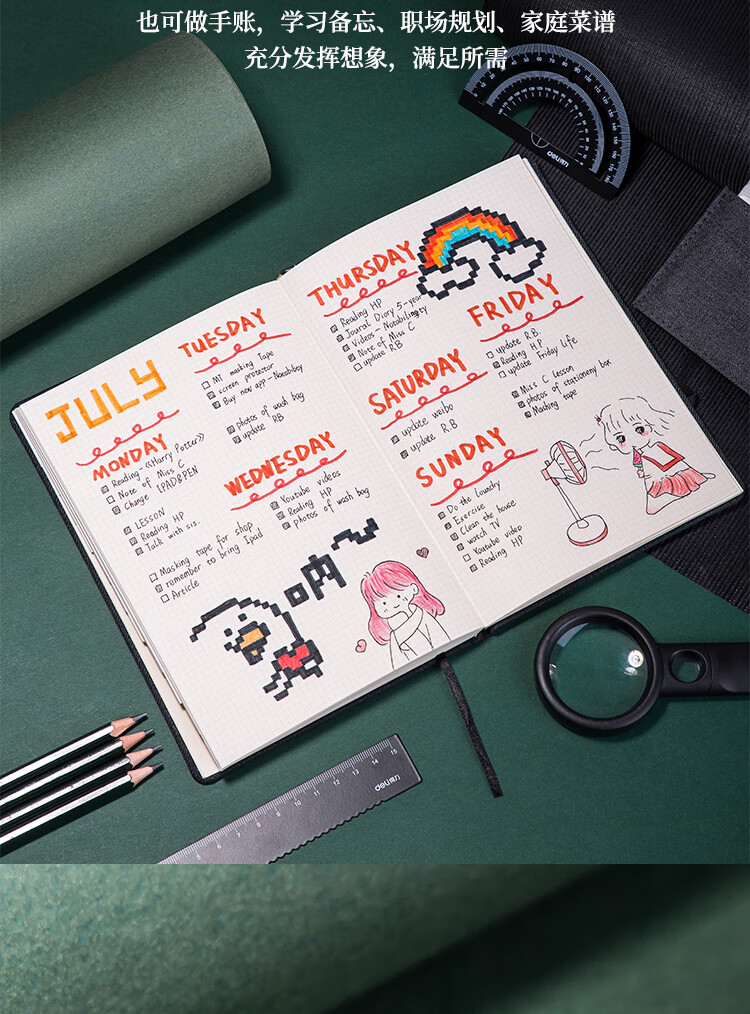 也可做手账，学习备忘、职场规划、家庭菜谱
充分发挥想象，满足所需
JULY
MONDAY
Reading 《Harry Potter》
Note of Miss C
Change IPAD&PEN
LESSON
Reading HP
Talk with sis.
Masking tape for shop
remember to bring Ipad
Article
TUESDAY
MT masking Tape
screen protector
Buy new app - Notability
photos of wash bag
update RB
WEDNESDAY
Youtube videos
Reading HP
photos of wash bag
THURSDAY
Reading HP
Joural Diary 5-year
Videos - Notability
Note of Miss C
update RB
FRIDAY
update R.B.
Reading H.P
update Friday life
Miss C lesson
photos of stationeny box
Masking tape
SATURDAY
update weibo
update R.B
SUNDAY
Do the Laundry
Exercise
Clean the house
watch TV
Youtube video
Reading HP
呐~
deli
5 6 7 8 9 10 11 12 13 14 15
deli